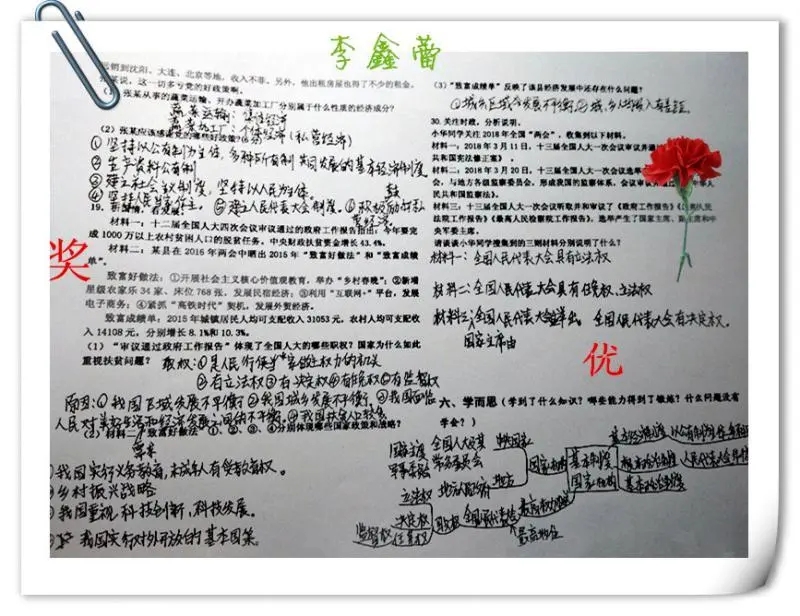 李鑫蕾
运销到沈阳、大连、北京等地，收入不菲。另外，他出租房屋也得了不少的租金。
张某说，这一切多亏党的好政策啊。
(1) 张某从事的蔬菜运输、开办蔬菜加工厂分别属于什么性质的经济成分？
蔬菜运输：个体经济
蔬菜加工厂：个体经济（私营经济）
(2) 张某应该感谢党的哪些好政策？
①坚持以公有制为主体，多种所有制共同发展的基本经济制度
②生产资料公有制
③建立社会主义制度，坚持以人为主体。
④坚持人民当家作主。⑤建立人民代表大会制度。⑥
19.析脱贫，看发展。
材料一：十二届全国人大四次会议审议通过的政府工作报告指出：今年要完
成 1000 万以上农村贫困人口的脱贫任务，中央财政扶贫资金增长 43.4%。
材料二：某县在 2016 年两会中晒出 2015 年“致富好做法”和“致富成绩
单”。
致富好做法：①开展社会主义核心价值观教育，举办“乡村春晚”；②新增
星级农家乐 34 家、床位 768 张，发展民宿经济；③利用“互联网+”平台，发展
电子商务；④紧抓“高铁时代”契机，发展外贸经济。
致富成绩单：2015 年城镇居民人均可支配收入 31053 元，农村人均可支配收
入 14108 元，分别增长 8.1%和 10.3%。
(1) “审议通过政府工作报告”体现了全国人大的哪些职权？国家为什么如此
重视扶贫问题？
职权：①是人民行使当家做主权力的机关
②有立法权③有决定权④有任免权⑤有监督权
原因：①我国区域发展不平衡②我国城乡发展不平衡。③我国面临
人民对美好生活和经济发展不同的不平衡。④我国扶贫人口较多
(2) 材料二“致富好做法”①、②、③、④分别体现哪些国家政策和战略？
①我国实行义务教育，未成年人有受教育权。
②乡村振兴战略
③我国重视科技创新，科技发展。
④我国实行对外开放的基本国策。
(3) “致富成绩单”反映了该县经济发展中还存在什么问题？
①城乡区域发展不平衡②城、乡人均收入有差距。
30. 关注时政，分析说明。
小华同学关注 2018 年全国“两会”，收集到以下材料。
材料一：2018 年 3 月 11 日，十三届全国人大一次会议审议并通过
共和国宪法修正案》。
材料二：2018 年 3 月 20 日，十三届全国人大一次会议选举
会，与地方各级监察委员会，形成我国的监察体系，会议审议并通过
民共和国监察法》。
材料三：十三届全国人大一次会议听取并审议了《政府工作报告》《最高人民
法院工作报告》《最高人民检察院工作报告》，选举产生了国家主席、副主席和中
央军委主席。
请谈谈小华同学搜集到的三则材料分别说明了什么？
材料一：全国人民代表大会具有立法权
材料二：全国人民代表大会具有任免权、立法权
材料三：全国人民代表大会选举出，全国人民代表大会有决定权。
国家主席由
奖
优
六、学而思（学到了什么知识？哪些能力得到了锻炼？什么问题没有
学会？）
全国人大及其
常务委员会
国家机构
基本制度
根本政治制度
人民代表大会制度
基本政治制度
立法权
决定权
任免权
监督权
职权
全国人民代表大会
最高权力机关